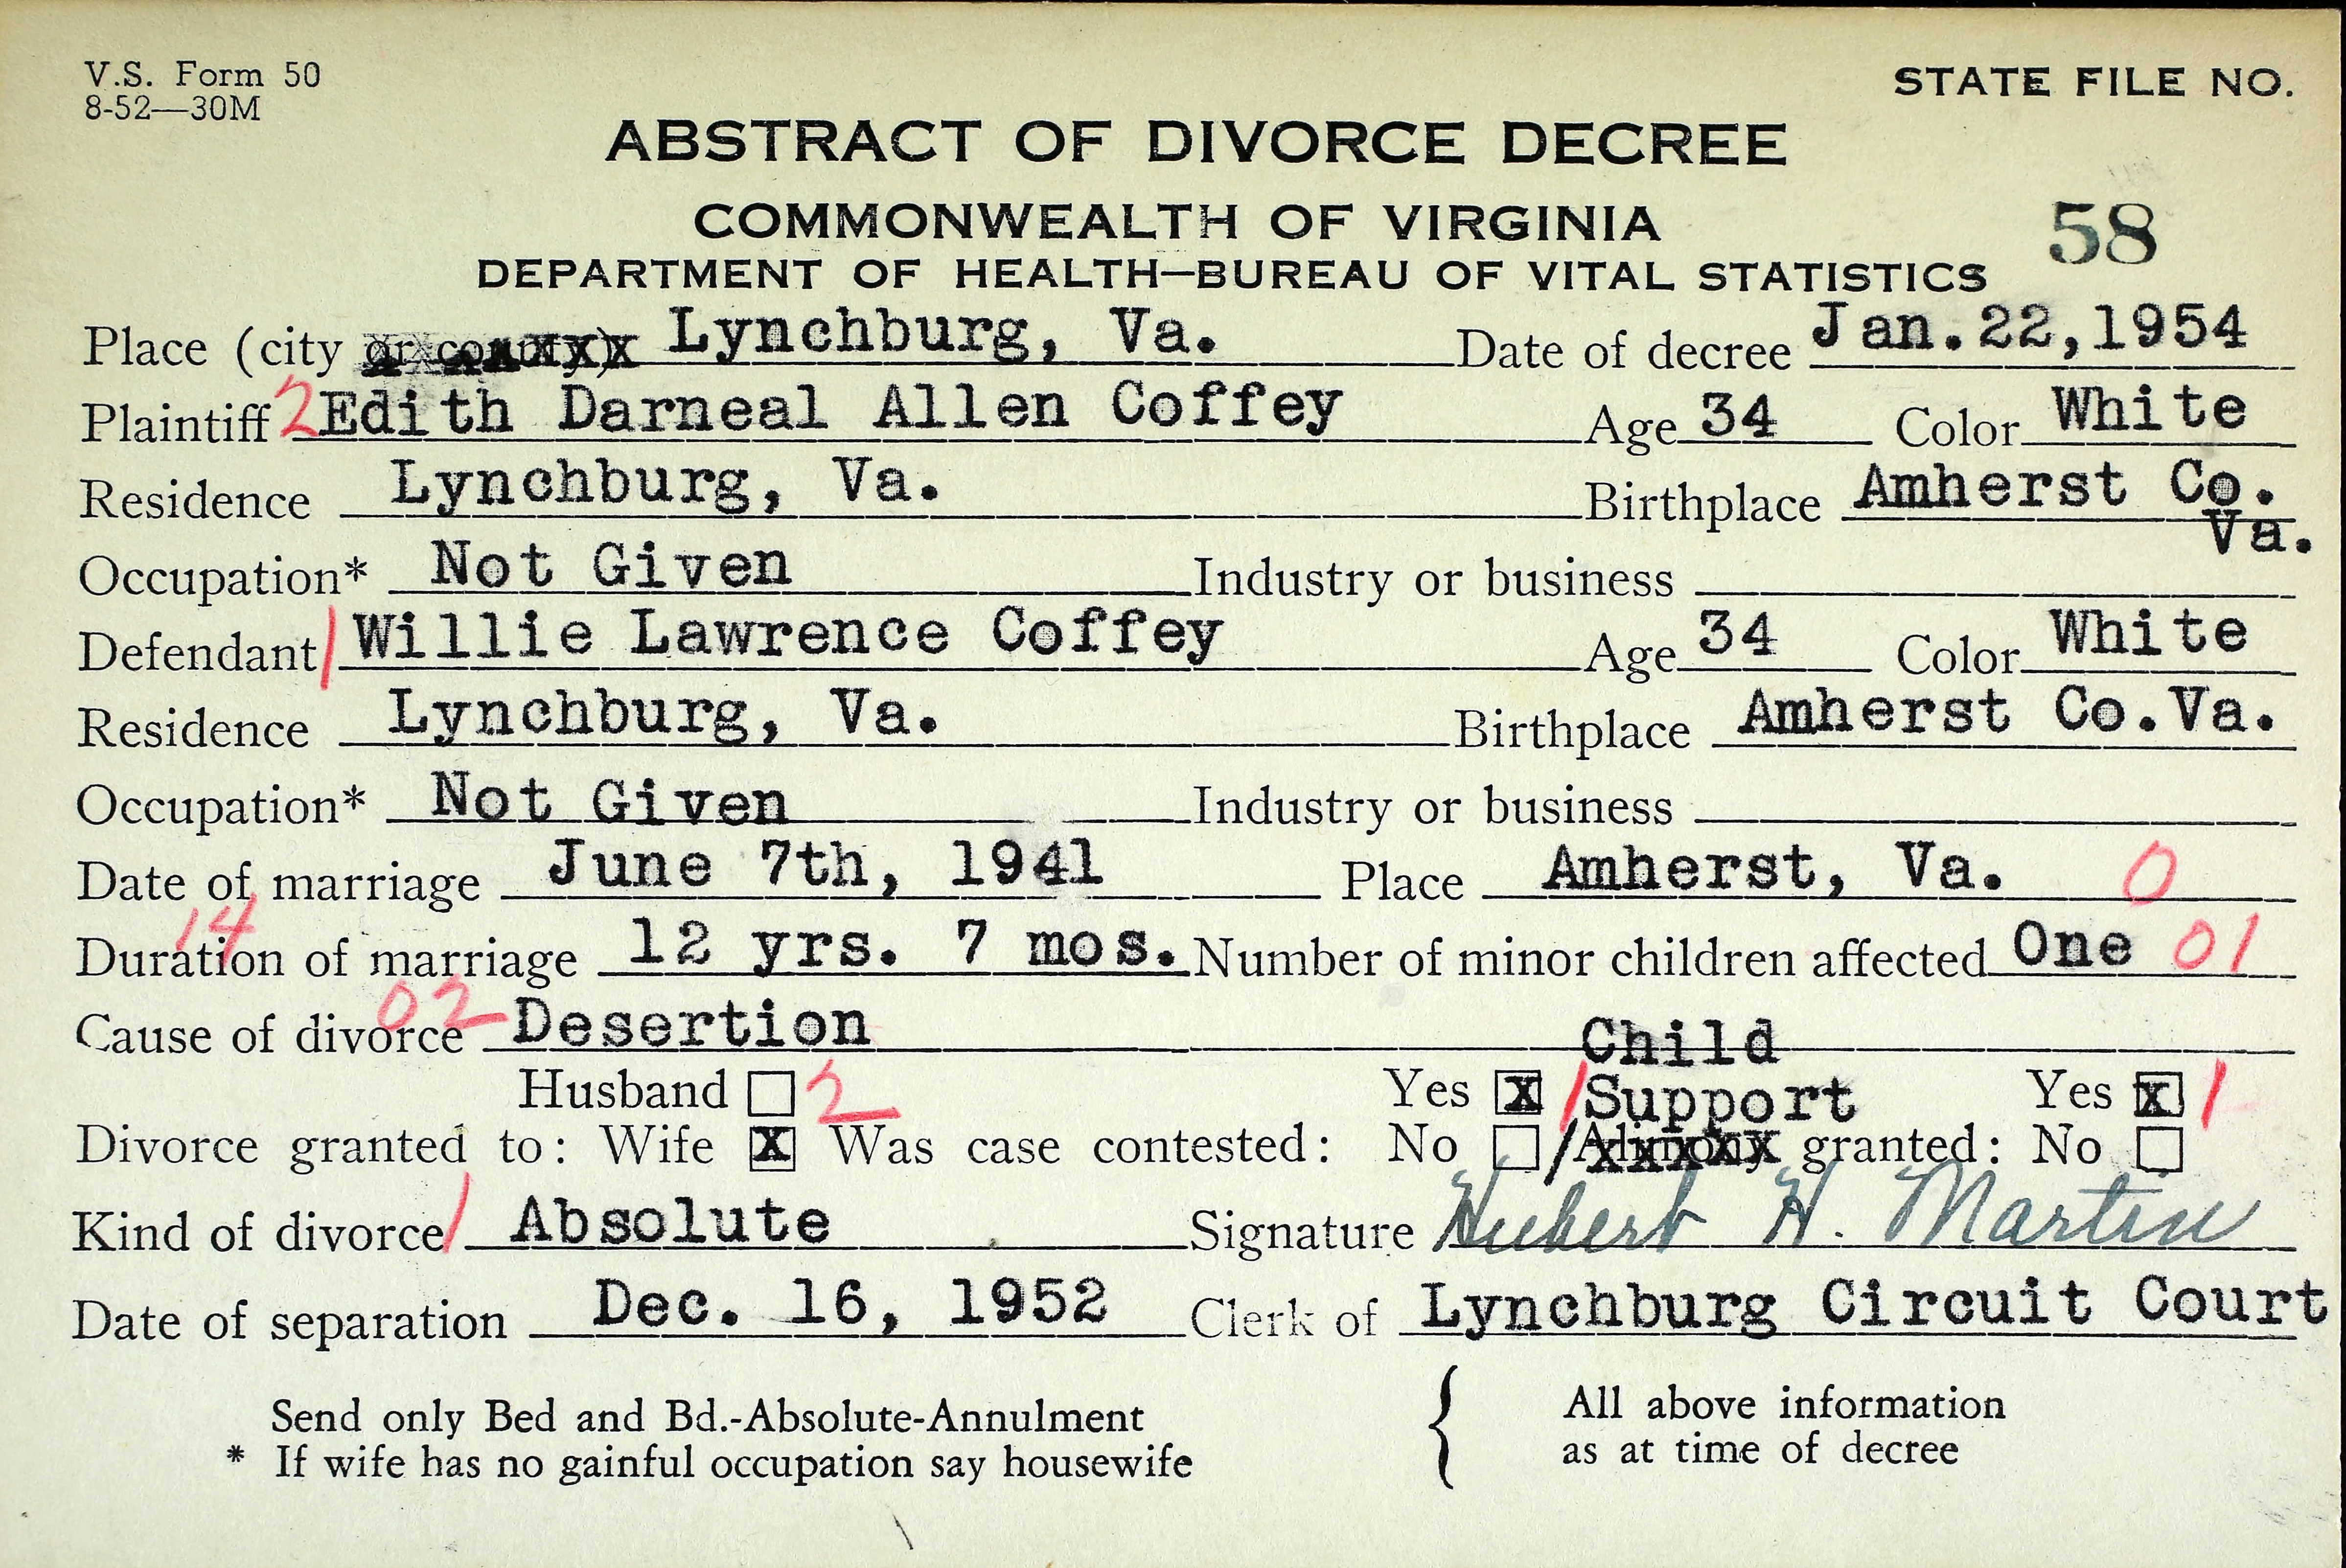 V.S. Form 50
8-52—30M
STATE FILE NO.
ABSTRACT OF DIVORCE DECREE
COMMONWEALTH OF VIRGINIA
58
DEPARTMENT OF HEALTH—BUREAU OF VITAL STATISTICS
Place (city or county) xxx Lynchburg, Va. Date of decree Jan.22,1954
Plaintiff 2 Edith Darneal Allen Coffey Age 34 Color White
Residence Lynchburg, Va. Birthplace Amherst Co.
Va.
Occupation* Not Given Industry or business
Defendant 1 Willie Lawrence Coffey Age 34 Color White
Residence Lynchburg, Va. Birthplace Amherst Co.Va.
Occupation* Not Given Industry or business
Date of marriage June 7th, 1941 Place Amherst, Va. 0
14
Duration of marriage 12 yrs. 7 mos. Number of minor children affected One 01
02
Cause of divorce Desertion
Child
Husband 2 Yes X 1 Support Yes X 1
Divorce granted to: Wife X Was case contested: No / Alimony granted: No
Kind of divorce 1 Absolute Signature Hubert H. Martin
Date of separation Dec. 16, 1952 Clerk of Lynchburg Circuit Court
Send only Bed and Bd.-Absolute-Annulment { All above information
* If wife has no gainful occupation say housewife as at time of decree